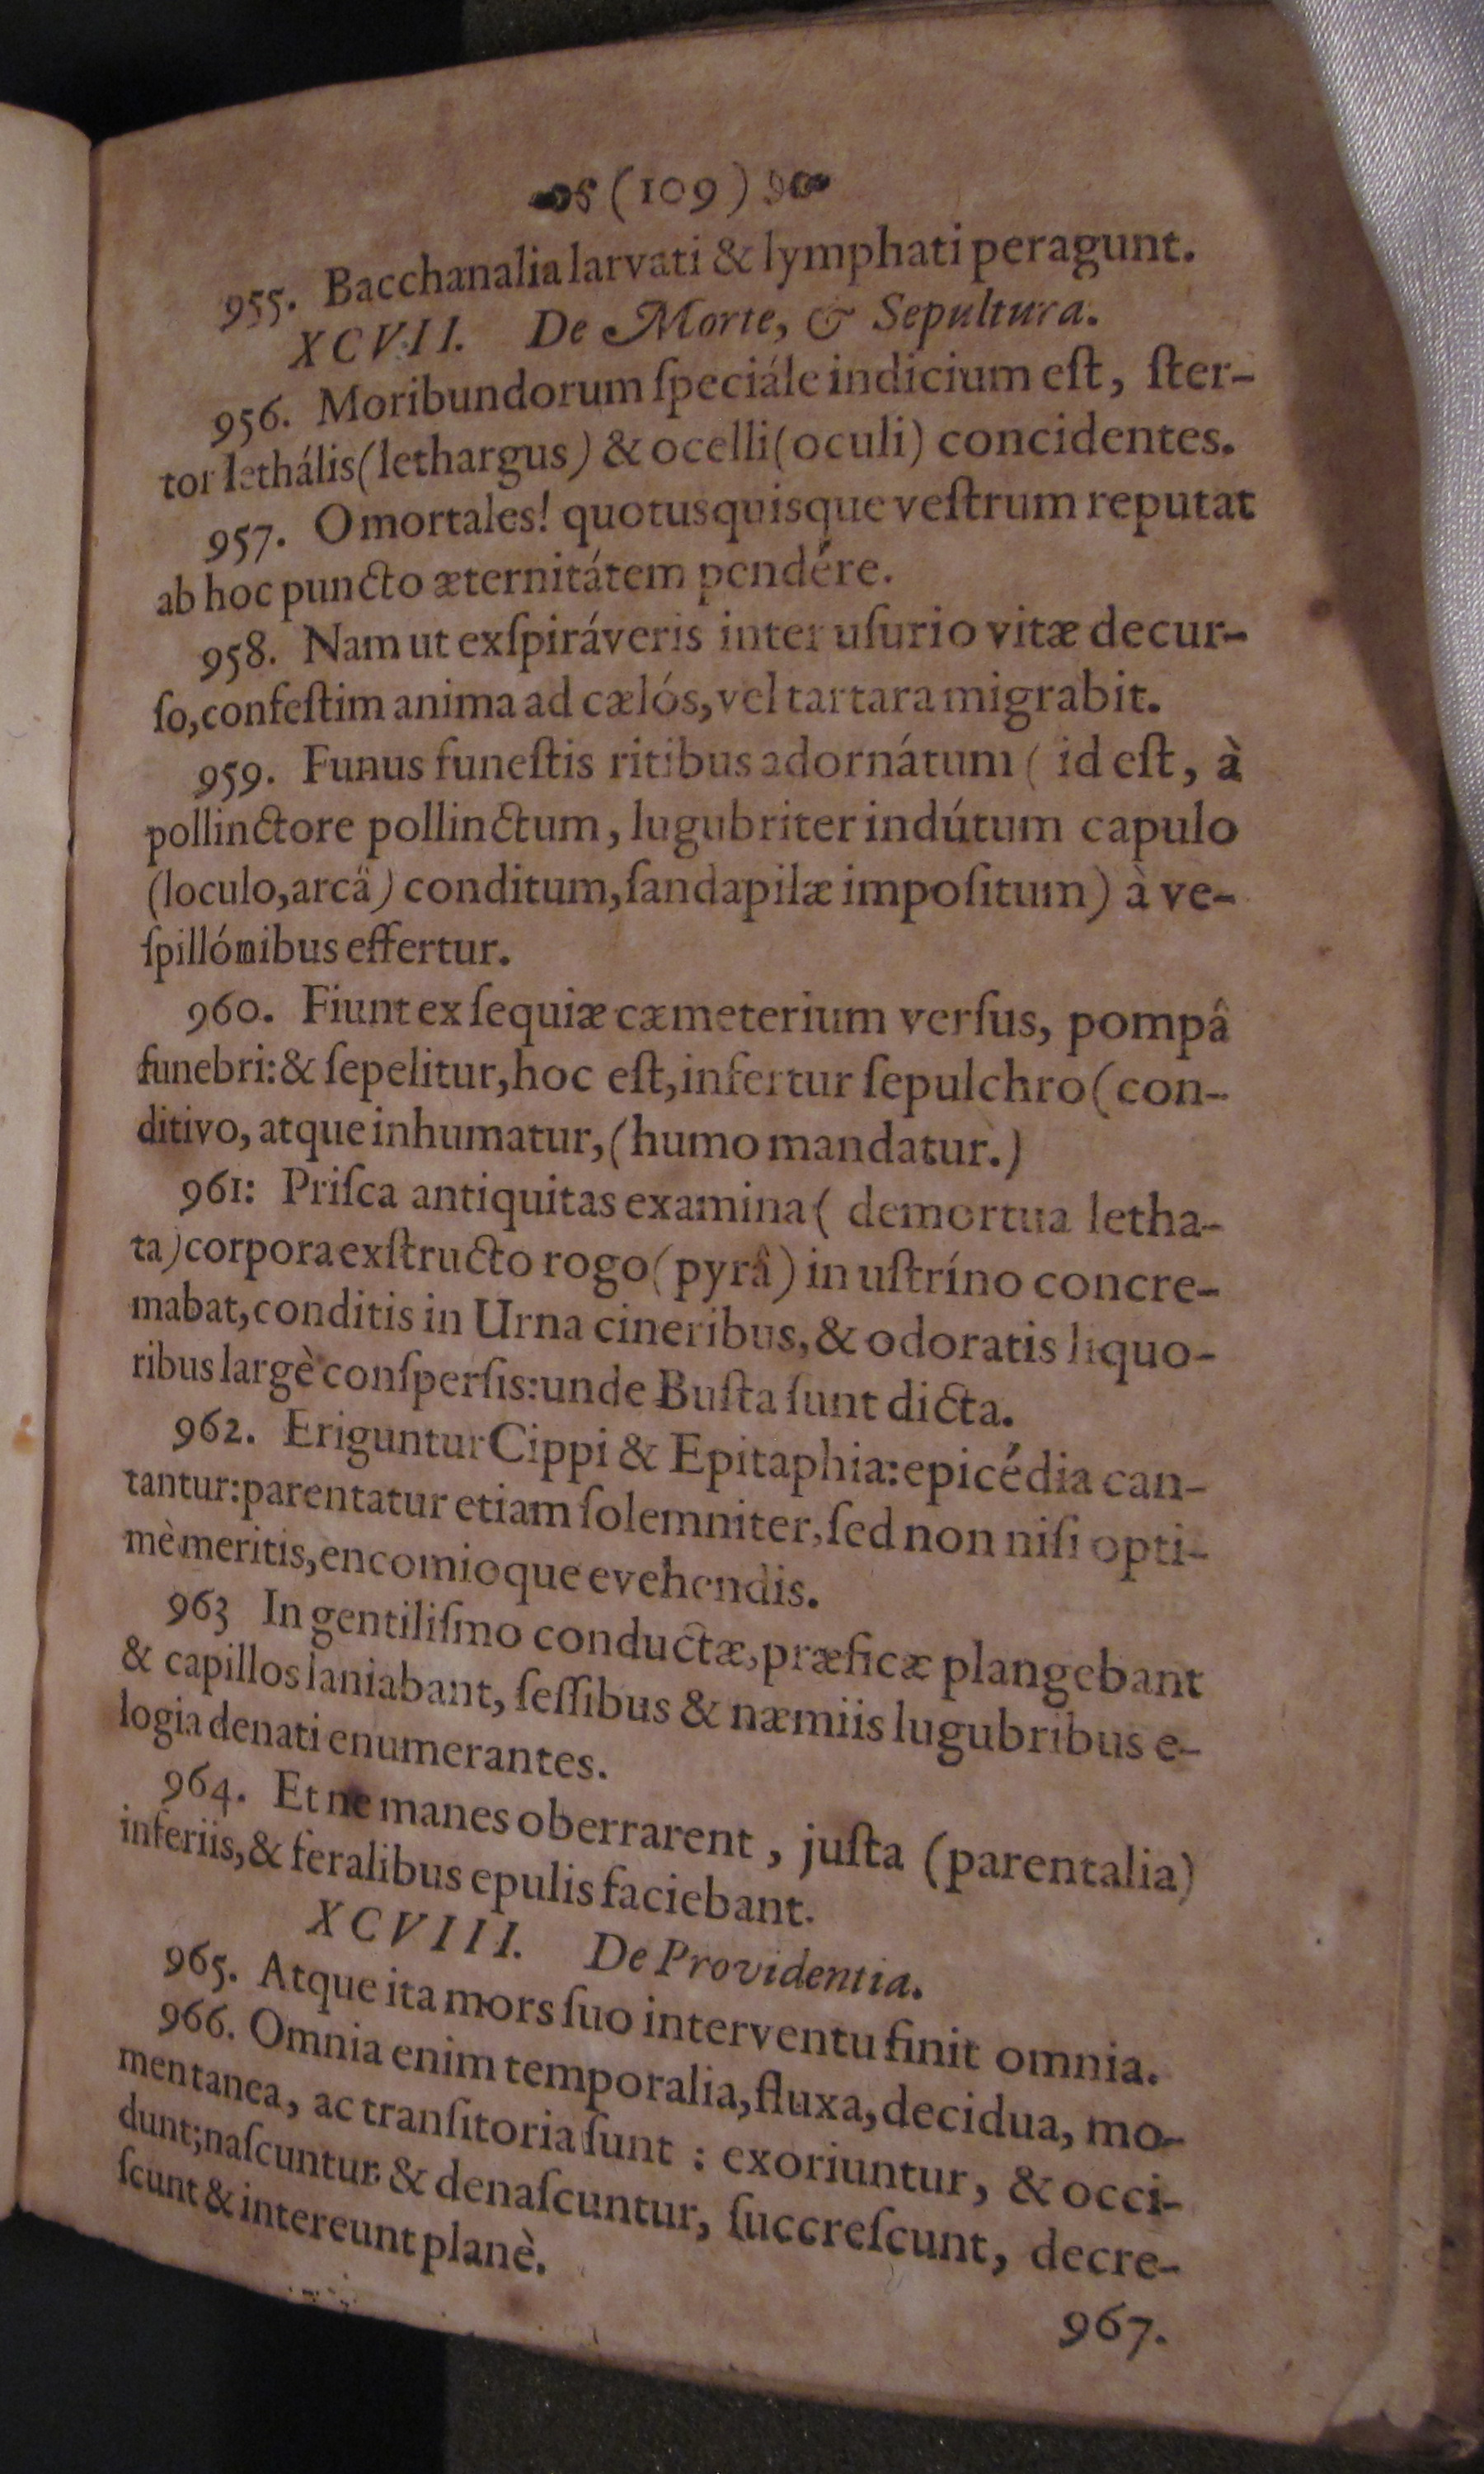 (109)
955. Bacchanalia larvati & lymphati peragunt.
XCVII. De Morte, & Sepultura.
956. Moribundorum ſpeciále indicium eſt, ſter-
tor lethális (lethargus) & ocelli (oculi) concidentes.
957. O mortales! quotusquisque veſtrum reputat
ab hoc puncto æternitátem pendére.
958. Nam ut exſpiráveris inter uſurio vitæ decur-
ſo, confeſtim anima ad cælós, vel tartara migrabit.
959. Funus funeſtis ritibus adornátum (id eſt, à
pollinctore pollinctum, lugubriter indútum capulo
(loculo, arcä) conditum, ſandapilæ impoſitum) à ve-
ſpillónibus effertur.
960. Fiunt ex ſequiæ cæmeterium verſus, pompâ
funebri: & ſepelitur, hoc eſt, infertur ſepulchro (con-
ditivo, atque inhumatur, (humo mandatur.)
961: Priſca antiquitas examina (demortua letha-
ta) corpora exſtructo rogo (pyrâ) in uſtríno concre-
mabat, conditis in Urna cineribus, & odoratis liquo-
ribus largè conſperſis: unde Buſta ſunt dicta.
962. Eriguntur Cippi & Epitaphia: epicédia can-
tantur: parentatur etiam ſolemniter, ſed non niſi opti-
mè meritis, encomioque evehendis.
963 In gentiliſmo conductæ, præficæ plangebant
& capillos laniabant, ſeſſibus & næmiis lugubribus e-
logia denati enumerantes.
964. Et ne manes oberrarent, juſta (parentalia)
inferiis, & feralibus epulis faciebant.
XCVIII. De Providentia.
965. Atque ita mors ſuo interventu finit omnia.
966. Omnia enim temporalia, fluxa, decidua, mo-
mentanea, ac tranſitoria ſunt: exoriuntur, & occi-
dunt; naſcuntur & denaſcuntur, ſuccreſcunt, decre-
ſcunt & intereunt planè.
967.